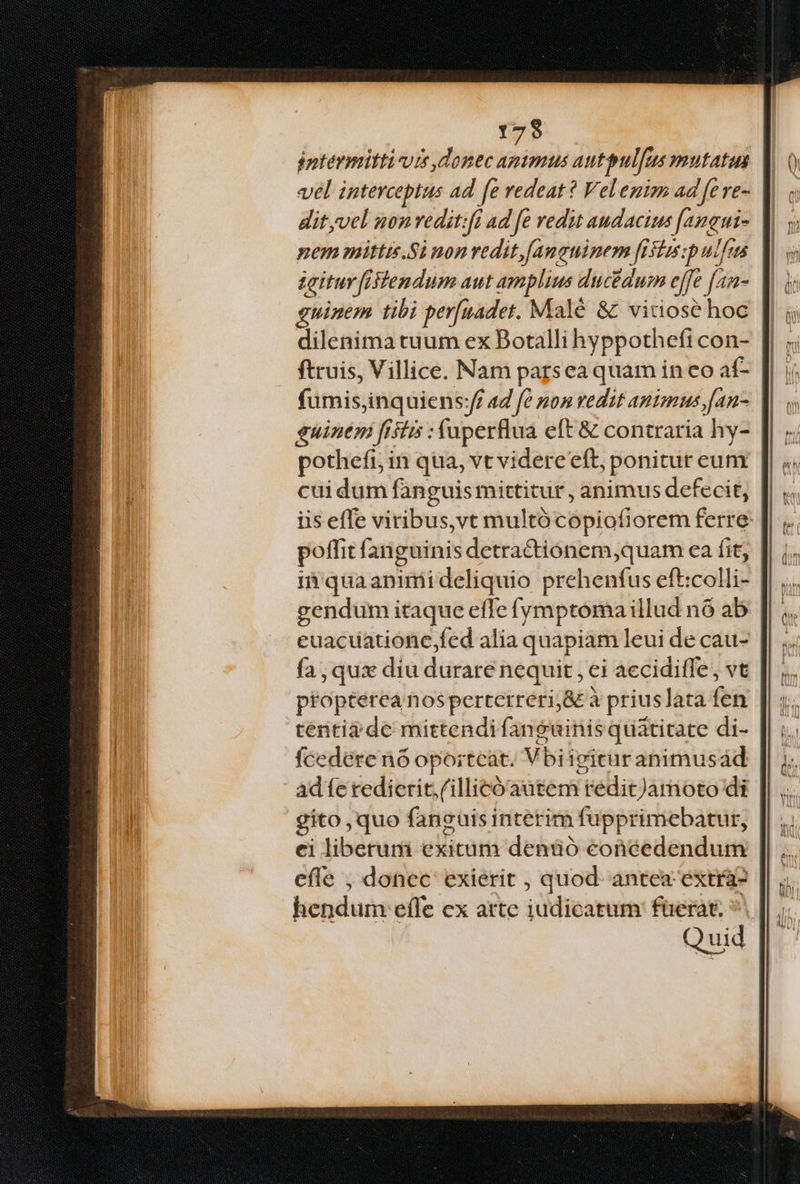 178
intermitti vis, donec animus aut pulſus mutatus
vel interceptus ad ſe redeat? Vel enim ad ſe re-
dit, vel non redit: ſi ad ſe redit audacius ſangui-
nem mittis. Si non redit, ſanguinem ſiſtis: pulſus
igitur ſiſtendum aut amplius ducẽdum eſſe ſan-
guinem tibi perſuadet. Malè & vitiosè hoc
dilenima tuum ex Botalli hyppotheſi con-
ſtruis, Villice. Nam pars ea quam in eo aſ-
ſumis, inquiens: ſi ad ſe non redit animus, ſan-
guinem ſiſtis: ſuperflua eſt & contraria hy-
potheſi, in qua, vt videre eſt, ponitur eum
cui dum ſanguis mittitur, animus defecit,
iis eſſe viribus, vt multò copioſiorem ferre
poſſit ſanguinis detractionem, quam ea ſit,
in qua animi deliquio prehenſus eſt: colli-
gendum itaque eſſe ſymptoma illud nõ ab
euacuatione, ſed alia quapiam leui de cau-
ſa, quæ diu durare nequit, ei accidiſſe, vt
propterea nos perterreri, & à prius lata ſen
tentia de mittendi ſanguinis quãtitate di-
ſcedere nõ oporteat. Vbi igitur animus ad
ad ſe redierit, (illicò autem redit) amoto di
gito, quo ſanguis interim ſupprimebatur,
ei liberum exitum denuò concedendum
eſſe, donec exierit, quod antea extra-
hendum eſſe ex arte iudicatum fuerat.
Quid